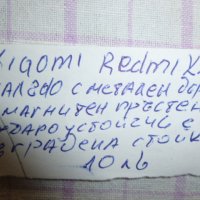 Xiaomi Redmi
с метален
магнитен пръстен
удароустойчив с
вградена стойка
10 лв